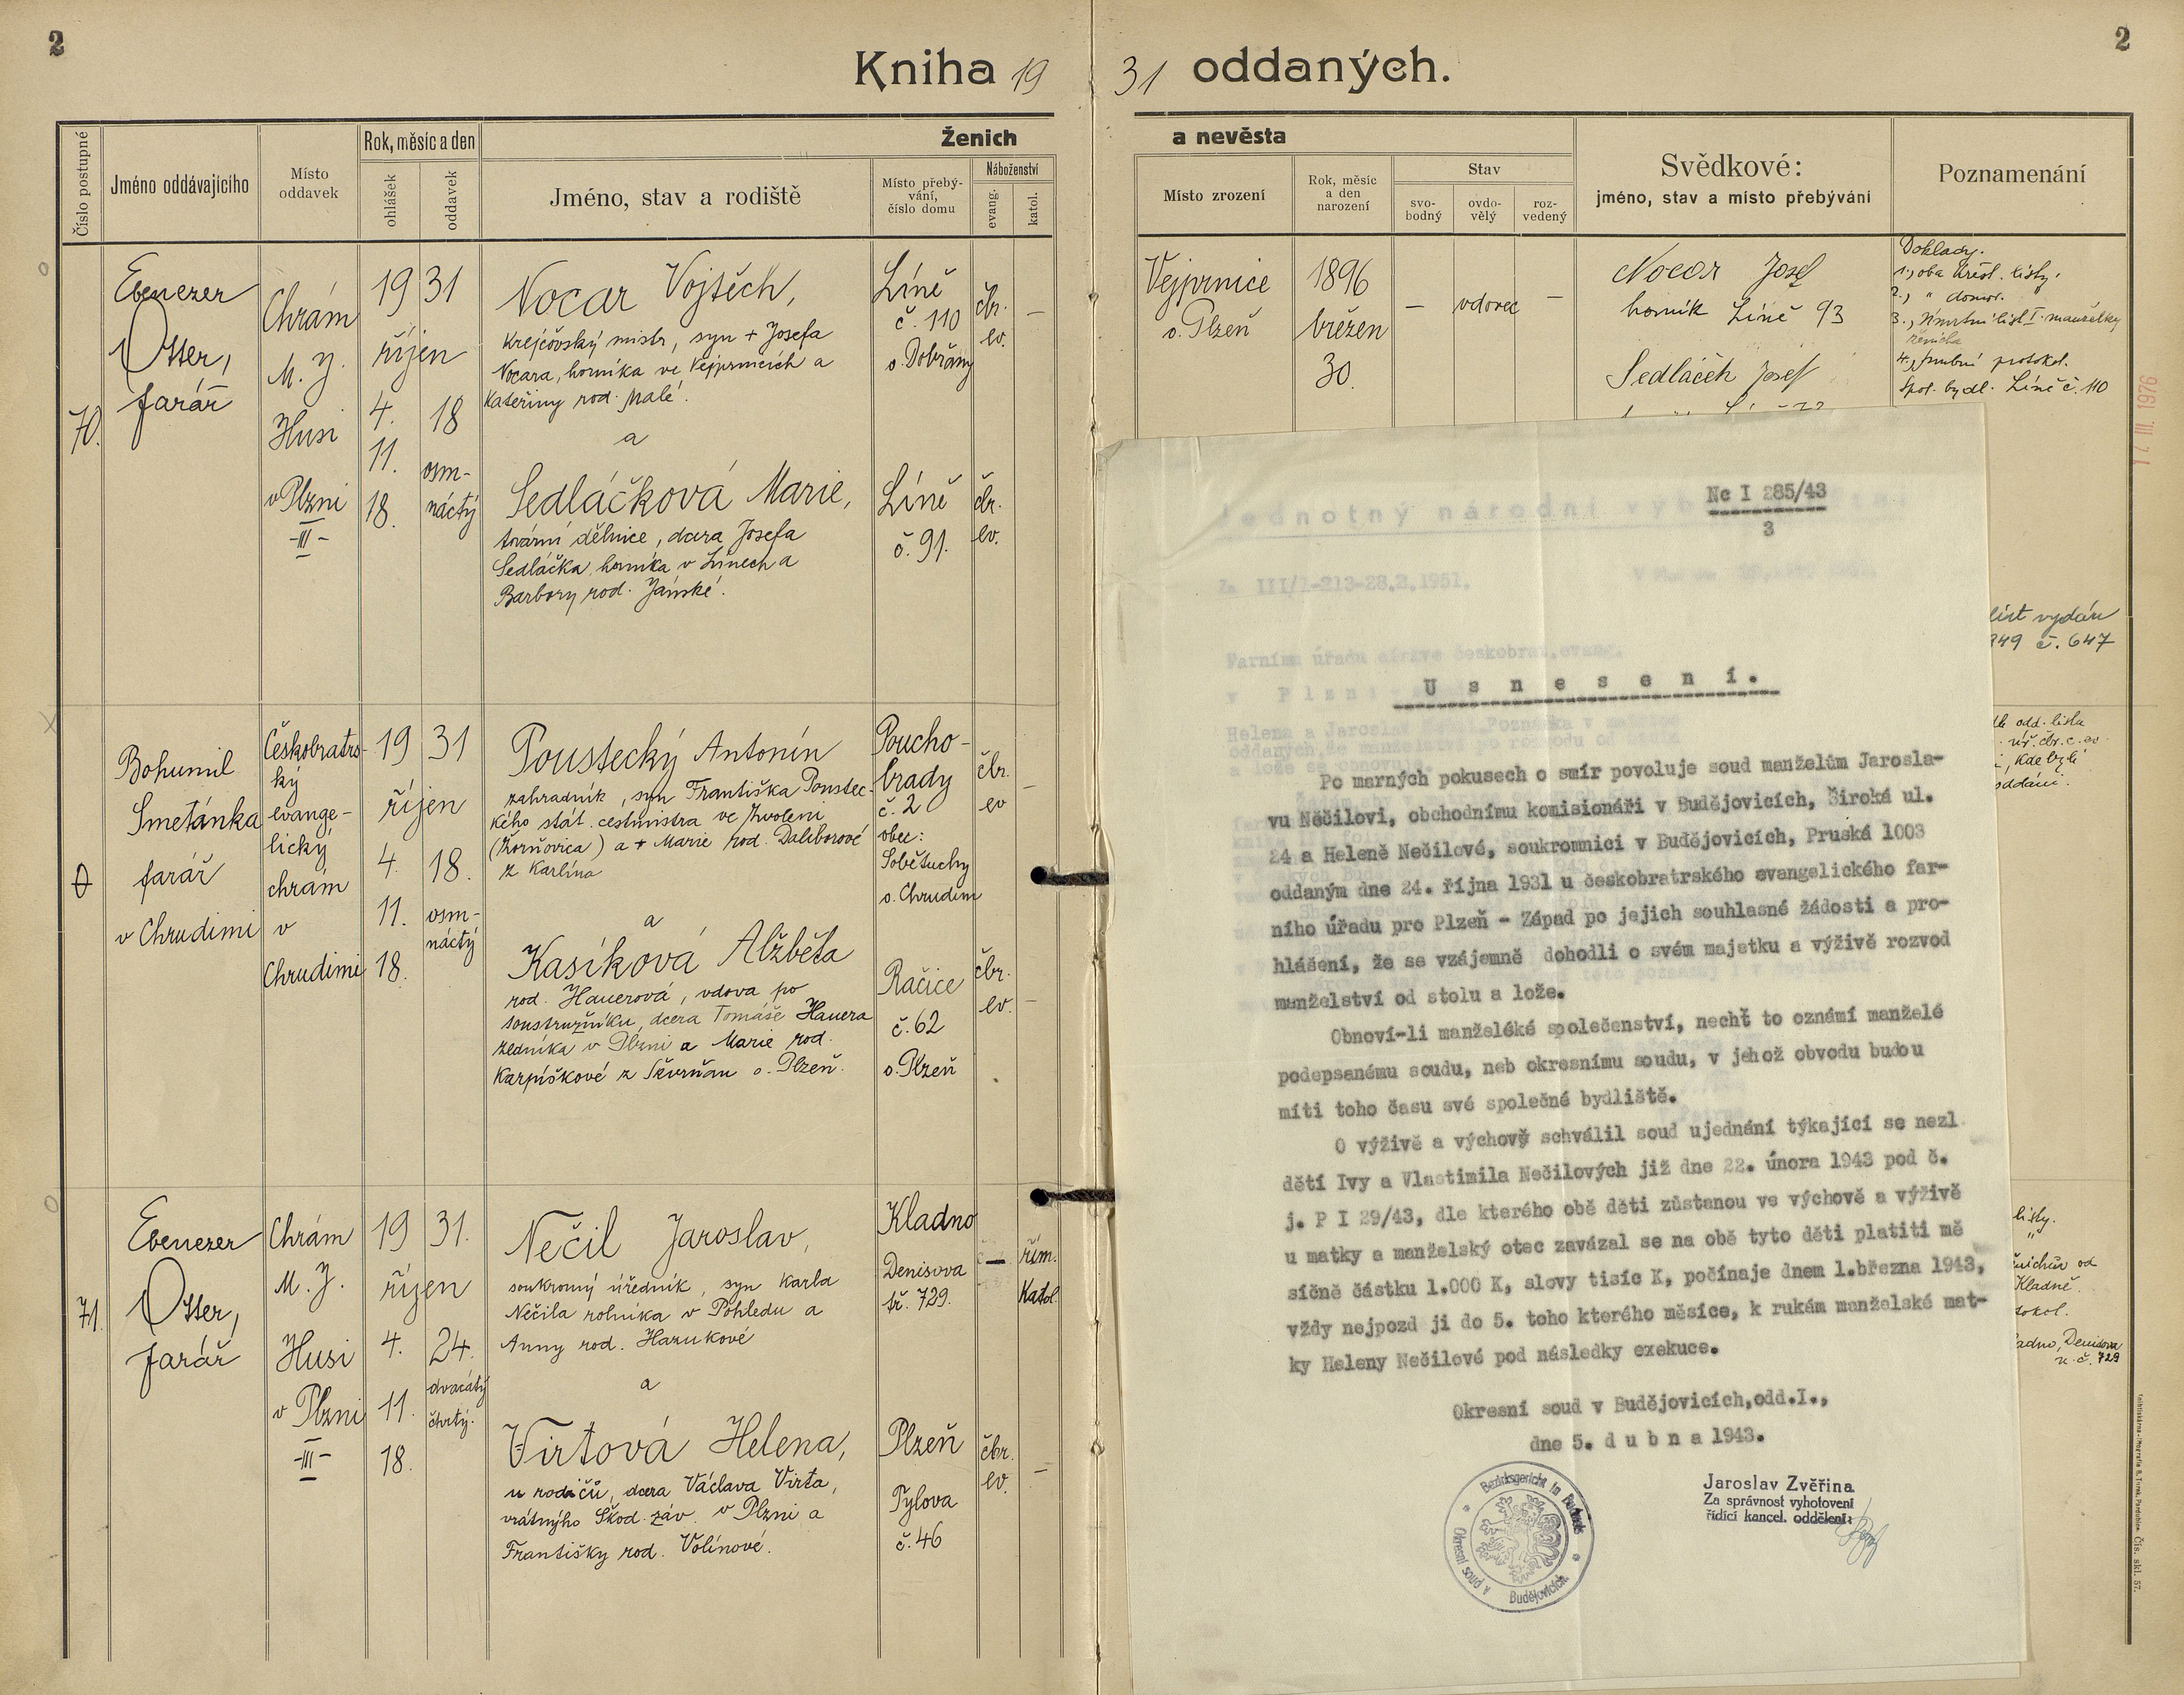 2
2
Kniha 19 31 oddaných.
Číslo postupné
Jméno oddávajícího
Místo
oddavek
Rok, měsíc a den
ohlášek
oddavek
Ženich
Jméno, stav a rodiště
Místo přebý-
vání,
číslo domu
Náboženství
evang.
katol.
a nevěsta
Místo zrození
Rok, měsíc
a den
narození
Stav
svo-
bodný
ovdo-
vělý
roz-
vedený
Svědkové:
jméno, stav a místo přebývání
Poznamenání
70.
Ebenezer
Otter,
farář
Chrám
M. J.
Husi
v Plzni
-III-
19 31
říjen
4. 18
11. osm-
18. náctý
Nocar Vojtěch,
krejčovský mistr, syn + Josefa
Nocara, horníka ve Vejprnicích a
Kateřiny rod. Malé.
a
Sedláčková Marie,
tovární dělnice, dcera Josefa
Sedláčka, horníka v Línech a
Barbory rod. Jánské.
Líně
č. 110
o. Dobřany
čbr.
ev.
–
Líně
č. 91.
čbr.
ev.
Vejprnice
o. Plzeň
1896
březen
30.
–
vdovec
–
Nocar Josef
horník Líně 93
Sedláček Josef
Doklady.
1., oba křest. listy.
2., " domov. "
3., Úmrtní list I. manželky
ženicha
4., snubní protokol.
Spol. bydl. Líně č. 110
17. III. 1976
list vydán
č. 647
0
Bohumil
Smetánka
farář
v Chrudimi
Českobratrs-
ký
evange-
lický
chrám
v
Chrudimi
19 31
říjen
4. 18.
11. osm-
náctý
18.
Poustecký Antonín
zahradník, syn Františka Poustec-
kého stát. cestmistra ve Zvoleni
a + Marie rod. Daliborové
z Karlína
a
Kasíková Alžběta
rod. Hauerová, vdova po
soustružníku, dcera Tomáše Hauera
zedníka v Plzni a Marie rod.
Karpíškové z Skvrňan o. Plzeň.
Poucho-
brady
č. 2
obec:
Sobětuchy
o. Chrudim
čbr.
ev
–
Račice
č. 62
o. Plzeň
čbr.
ev.
–
odd. listu
kde byli
oddáni.
71.
Ebenezer
Otter,
farář
Chrám
M. J.
Husi
v Plzni
-III-
19 31.
říjen
4. 24.
dvacátý
11. čtvrtý.
18.
Nečil Jaroslav,
soukromý úředník, syn Karla
Nečila rolníka v Pohledu a
Anny rod. Hazukové
a
Virtová Helena,
u rodičů, dcera Václava Virta,
vrátného Škod. záv. v Plzni a
Františky rod. Volínové.
Kladno
Denisova
tř. 729.
–
řím.
Katol.
Plzeň
Tylova
č. 46
čbr.
ev.
–
listy.
"
od
Kladně.
Denisova
u. č. 729
Nc I 285/43
3
Jednotný národní
Zn III/1-213-28.2.1951.
Farnímu úřadu církve českobratr.evang.
v Plzni
U s n e s e n í .
Po marných pokusech o smír povoluje soud manželům Jarosla-
vu Nečilovi, obchodnímu komisionáři v Budějovicích, Široká ul.
24 a Heleně Nečilové, soukromnici v Budějovicích, Pruská 1003
oddaným dne 24. října 1931 u českobratrského evangelického far-
ního úřadu pro Plzeň - Západ po jejich souhlasné žádosti a pro-
hlášení, že se vzájemně dohodli o svém majetku a výživě rozvod
manželství od stolu a lože.
Obnoví-li manželéké společenství, nechť to oznámí manželé
podepsanému soudu, neb okresnímu soudu, v jehož obvodu budou
míti toho času své společné bydliště.
O výživě a výchově schválil soud ujednání týkající se nezl.
dětí Ivy a Vlastimila Nečilových již dne 22. února 1943 pod č.
j. P I 29/43, dle kterého obě děti zůstanou ve výchově a výživě
u matky a manželský otec zavázal se na obě tyto děti platiti mě
síčně částku 1.000 K, slovy tisíc K, počínaje dnem 1.března 1943,
vždy nejpozd ji do 5. toho kterého měsíce, k rukám manželské mat-
ky Heleny Nečilové pod následky exekuce.
Okresní soud v Budějovicích,odd.I.,
dne 5. d u b n a 1943.
Bezirksgericht in Budweis
Okresní soud v Budějovicích
Jaroslav Zvěřina
Za správnost vyhotovení
řídící kancel. oddělení:
Čís. skl. 57.